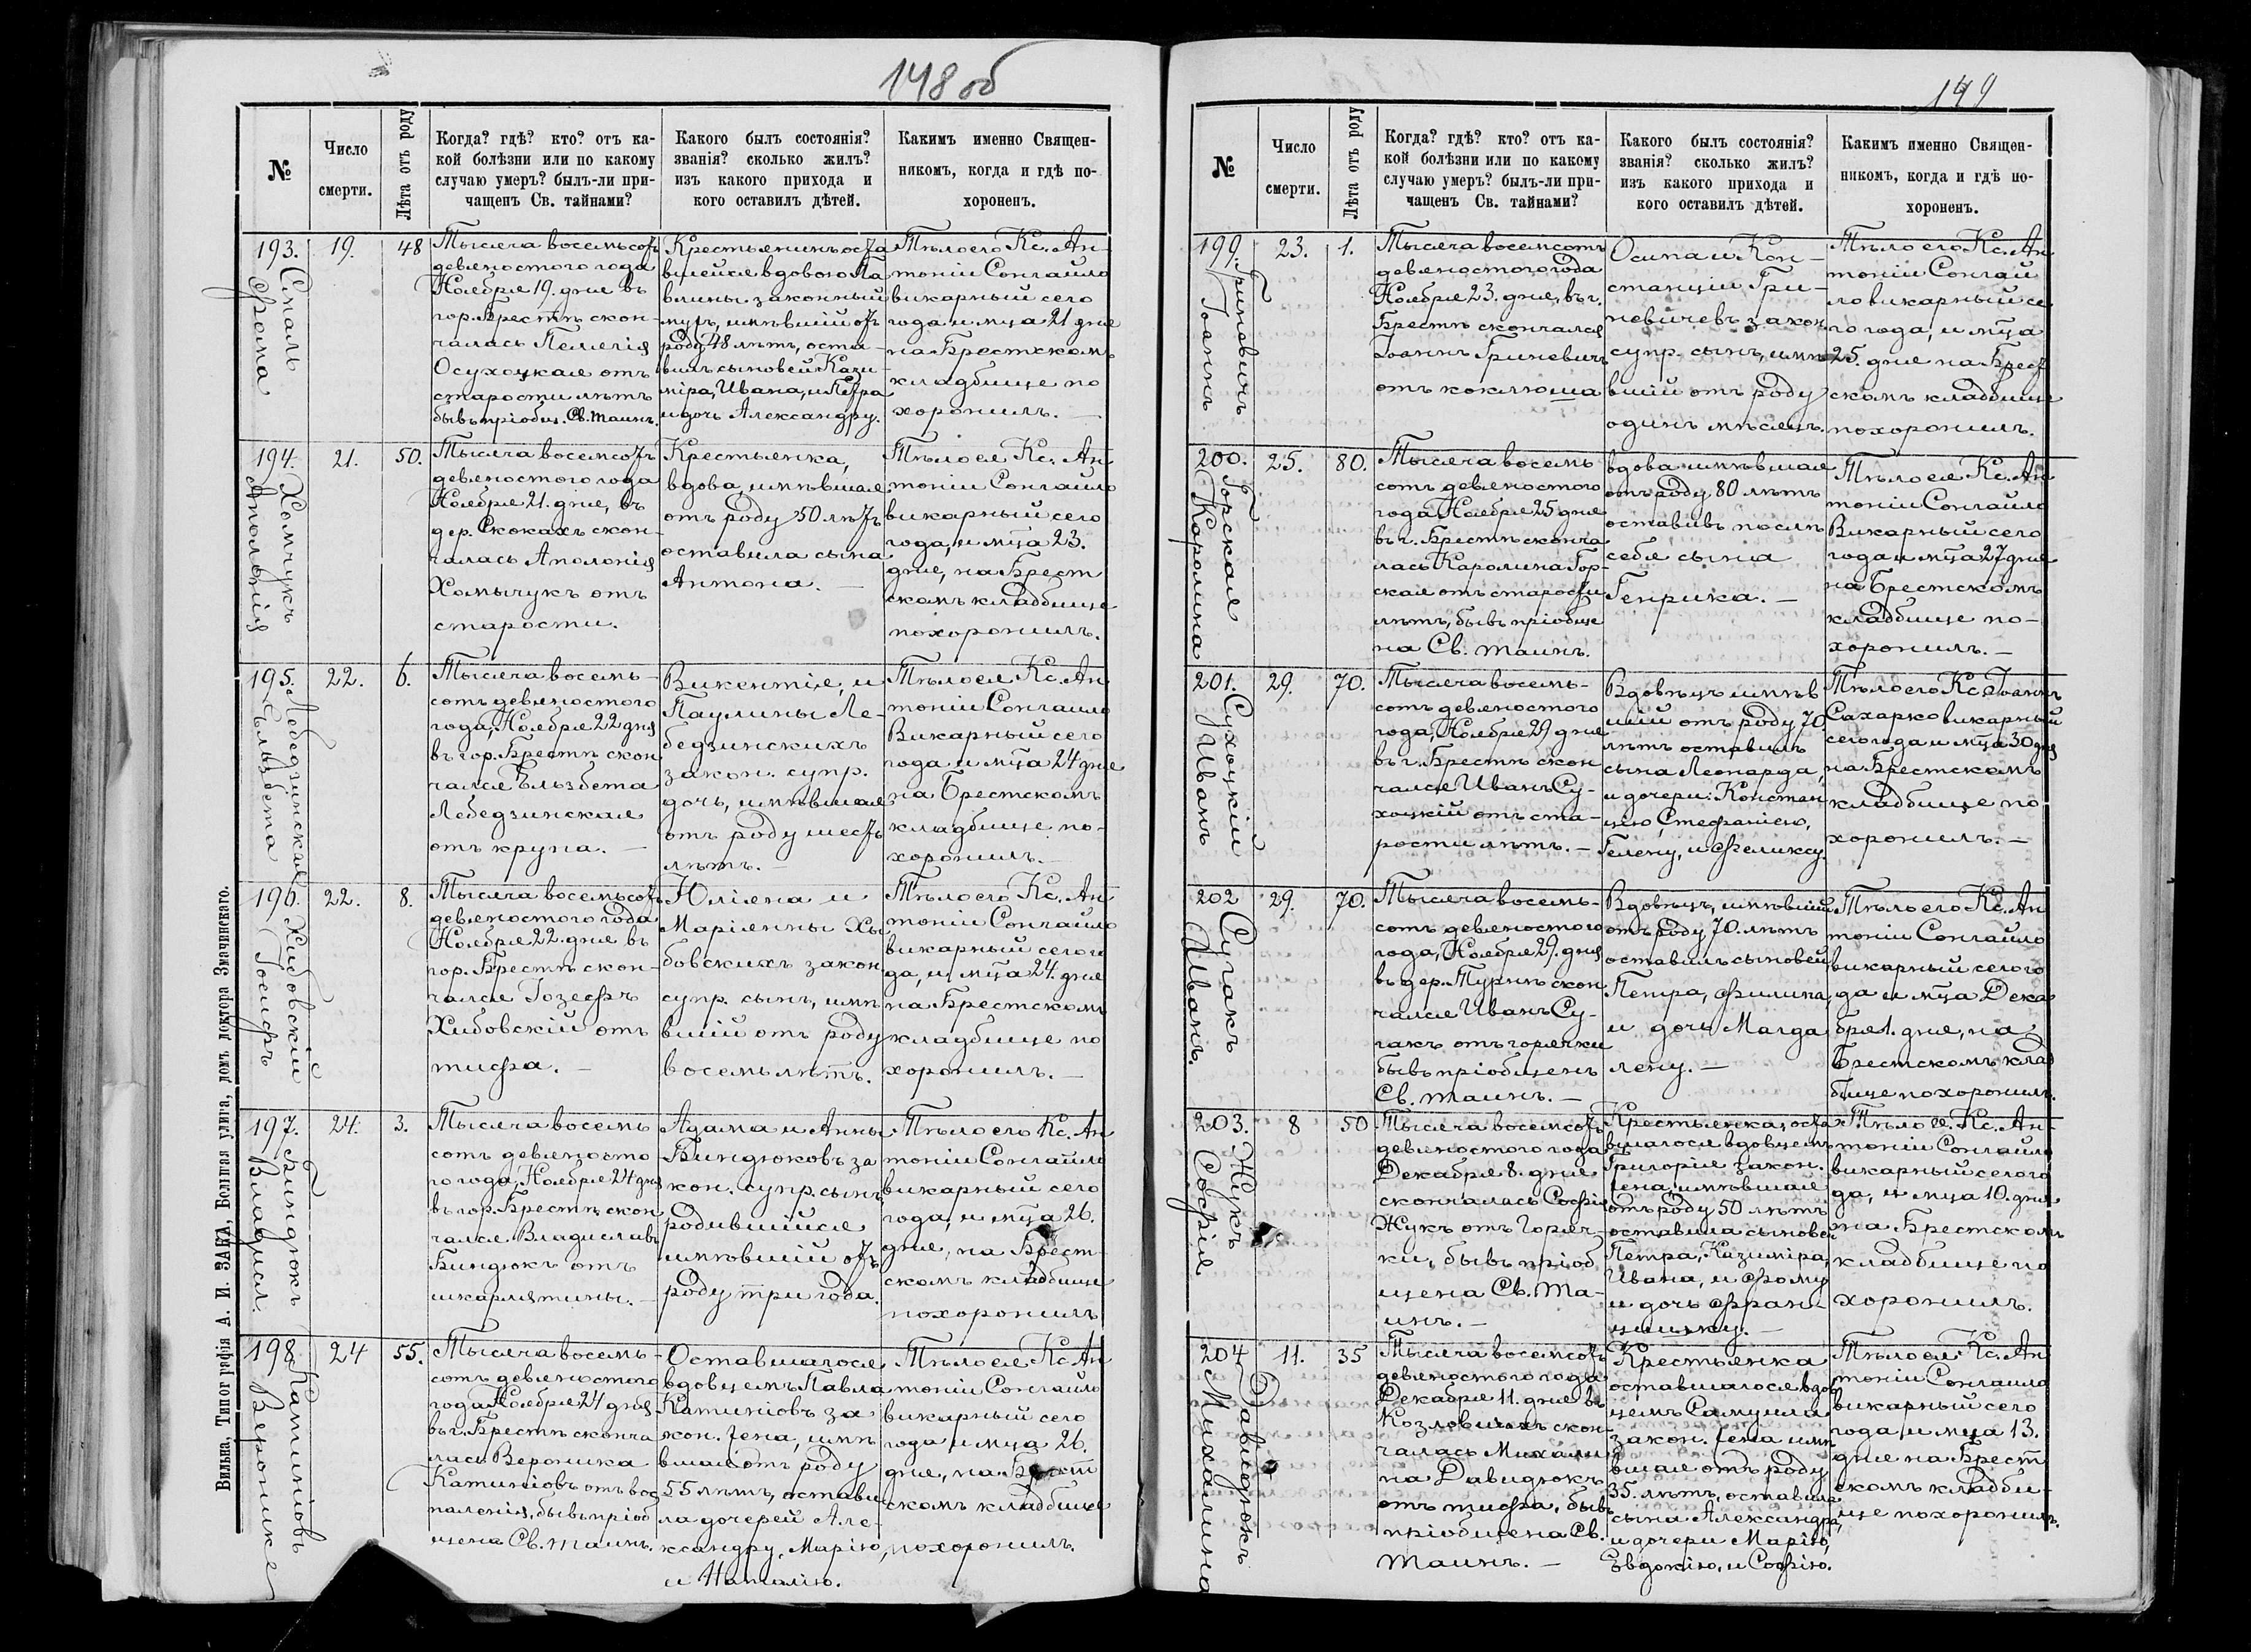 148 об
№
Число
смерти.
Лѣта отъ роду
Когда? гдѣ? кто? отъ ка-
кой болѣзни или по какому
случаю умеръ? былъ-ли при-
чащенъ Св. тайнами?
Какого былъ состоянія?
званія? сколько жилъ?
изъ какого прихода и
кого оставилъ дѣтей.
Какимъ именно Священ-
никомъ, когда и гдѣ по-
хороненъ.
193.
19.
48
Тысяча восемьсотъ
девяностого года
Ноября 19. дня въ
гор. Брестѣ скон-
чалась Пелегія
Осухоцкая отъ
старости лѣтъ
бывъ пріобщ. Св. Таинъ.
вшейся вдовою Па
влины законный
мужъ, имѣвшій отъ
роду 48 лѣтъ, оста-
вилъ сыновей Кази-
міра, Ивана, и Петра
и дочь Александру.
Тѣло его Кс. Ан-
тоній Сонгайло
викарный сего
года и мца 21 дня
на Брестскомъ
кладбище по
хоронилъ. —
194.
Хомчукъ
Аполонія
21.
50.
Тысяча восемсотъ
девяностого года
Ноября 21. дня, въ
дер. Скокахъ скон-
чалась Аполонія
Хомычукъ отъ
старости.
Крестьянка,
вдова, имѣвшая
отъ роду 50 лѣтъ
оставила сына
Антона. —
Тѣло ея Кс. Ан
тоній Сонгайло
викарный сего
года, и мца 23.
дня, на Брест
скомъ кладбище
похоронилъ.
195.
Лебедзинская
Ельзбета
22.
6.
Тысяча восемь-
сотъ девяностого
года, Ноября 22 дня
въ гор. Брестѣ скон
чалса Ельзбета
Лебедзинская
отъ крупа. —
Викентія, и
Паулины Ле-
бедзинскихъ
закон. супр.
дочь, имѣвшая
отъ роду шесть
лѣтъ. —
Тѣло ея Кс. Ан
тоній Сонгайло
Викарный сего
года и мца 24 дня
на Брестскомъ
кладбище по-
хоронилъ. —
196.
Хибовскій
Іосифъ
22.
8.
Тысяча восемьсотъ
девяностого года
Ноября 22. дня въ
гор. Брестѣ скон-
чался Іозефъ
Хибовскій отъ
тифа. —
Юліяна и
Маріянны Хы
бовскихъ закон
супр. сынъ, имѣ
вшій отъ роду
восемь лѣтъ.
Тѣло его Кс. Ан
тоній Сонгайло
викарный сего го
да, и мца 24. дня
на Брестскомъ
кладбище по
хоронилъ. —
197.
Биндюкъ
Владисл.
24.
3.
Тысяча восемь
сотъ девяносто
го года, Ноября 24 дня
въ гор. Брестѣ скон
чался Владиславъ
Биндюкъ отъ
шкарлятины. —
Адама и Анны
Биндюковъ за
кон. супр. сынъ
родившійся
имѣвшій отъ
роду три года.
Тѣло его Кс. Ан
тоній Сонгайло
викарный сего
года, и мца 26.
дня, на Брест-
скомъ кладбище
похоронилъ
198.
Катиніовъ
Вероника
24
55.
Тысяча восемь-
сотъ девяностого
года Ноября 24 дня
въ г. Брестѣ сконча
лась Вероника
Катиніовъ отъ вос
паленія, бывъ пріоб
щена Св. Таинъ.
Оставшагося
вдовцемъ Павла
Катиніовъ за
кон. жена, имѣ
вшая отъ роду
55 лѣтъ, остави
ла дочерей Але-
ксандру, Марію,
и Наталію.
Тѣло ея Кс. Ан
тоній Сонгайло
викарный сего
года и мца 26.
дня, на Брест
скомъ кладбище
похоронилъ.
Вильна, Типографія А. И. ЗАКА, Большая улица, домъ доктора Значинскаго.
149
№
Число
смерти.
Лѣта отъ роду
Когда? гдѣ? кто? отъ ка-
кой болѣзни или по какому
случаю умеръ? былъ-ли при-
чащенъ Св. тайнами?
Какого былъ состоянія?
званія? сколько жилъ?
изъ какого прихода и
кого оставилъ дѣтей.
Какимъ именно Священ-
никомъ, когда и гдѣ по-
хороненъ.
199.
Гриневичъ
Іоаннъ
23.
1.
Тысяча восемсотъ
девяностого года
Ноября 23. дня, въ г.
Брестѣ скончался
Іоаннъ Гриневичъ
отъ коклюша
Осипа и Кон-
станціи Гри-
невичевъ закон
супр. сынъ, имѣ
вшій отъ роду
одинъ мѣсяцъ.
Тѣло его Кс. Ан
тоній Сонгай
ло викарный се
го года, и мца
25. дня на Брест
скомъ кладбище
похоронилъ.
200.
Горская
Каролина
25.
80.
Тысяча восемь
сотъ девяностого
года Ноября 25 дня
въ г. Брестѣ сконча
лась Каролина Гор-
ская отъ старости
лѣтъ, бывъ пріобще
на Св. Таинъ.
вдова имѣвшая
отъ роду 80 лѣтъ
оставивъ послѣ
себя сына
Генриха. —
Тѣло ея Кс. Ан
тоній Сонгайло
Викарный сего
года и мца 27 дня
на Брестскомъ
кладбище по-
хоронилъ. —
201.
Сухоцкій
Иванъ
29.
70.
Тысяча восемь-
сотъ девяностого
года, Ноября 29 дня
въ г. Брестѣ скон
чался Иванъ Су-
хоцкій отъ ста-
рости лѣтъ. —
Вдовецъ имѣв
шій отъ роду 70
лѣтъ оставилъ
сына Леонарда,
и дочери: Констан
цію, Стефанію,
Гелену, и Феликсу.
Тѣло его Кс. Іоаннъ
Сахарко викарный
сего года и мца 30 дня
на Брестскомъ
кладбище по
хоронилъ. —
202
Сугакъ
Иванъ
29.
70.
Тысяча восемь-
сотъ девяностого
года, Ноября 29. дня
въ дер. Турнѣ скон
чался Иванъ Су-
гакъ отъ горячки
бывъ пріобщенъ
Св. Таинъ. —
Вдовецъ, имѣвшій
отъ роду 70. лѣтъ
оставилъ сыновей
Петра, Филипа,
и дочь Магда
лену. —
Тѣло его Кс. Ан
тоній Сонгайло
викарный сего го
да и мца Дека
бря 1. дня, на
Брестскомъ клад
бище похоронилъ.
203.
Жукъ
Софія
8
50
Тысяча восемсотъ
девяностого года
Декабря 8. дня
скончалась Софія
Жукъ отъ Горяч-
ки, бывъ пріоб
щена Св. Та-
инъ. —
вшагося вдовцемъ
Григорія закон.
жена, имѣвшая
отъ роду 50 лѣтъ
оставила сыновей
Петра, Казиміра,
Ивана, и Фому
и дочь Фран-
цишку. —
Тѣло ея. Кс. Ан-
тоній Сонгайло
викарный сего го
да, и мца 10. дня
на Брестскомъ
кладбище по
хоронилъ.
204
Давидюкъ
Михалина
11.
35
Тысяча восемсотъ
девяностого года
Декабря 11. дня въ
Козловичахъ скон-
чалась Михали
на Давидюкъ
отъ тифа, бывъ
пріобщена Св.
Таинъ. —
Крестьянка
оставшагося вдов
цемъ Самуила
закон. жена имѣ
вшая отъ роду
35. лѣтъ, оставила
сына Александра,
и дочери Марію,
Евдокію, и Софію.
Тѣло ея Кс. Ан
тоній Сонгайло
викарный сего
года, и мца 13.
дня на Брест
скомъ кладби-
ще похоронилъ.